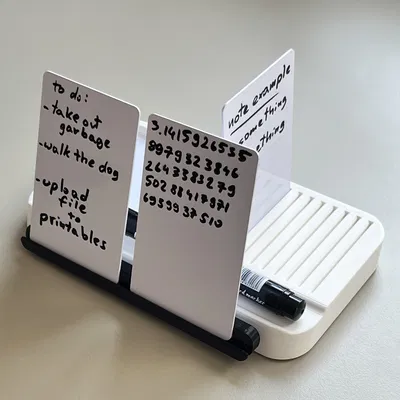 to do:
- take out
garbage
- walk the dog
- upload
file
to
printables
3.1415926535
8979323846
2643383279
50288417971
6939937510
note example
something
ething
marker